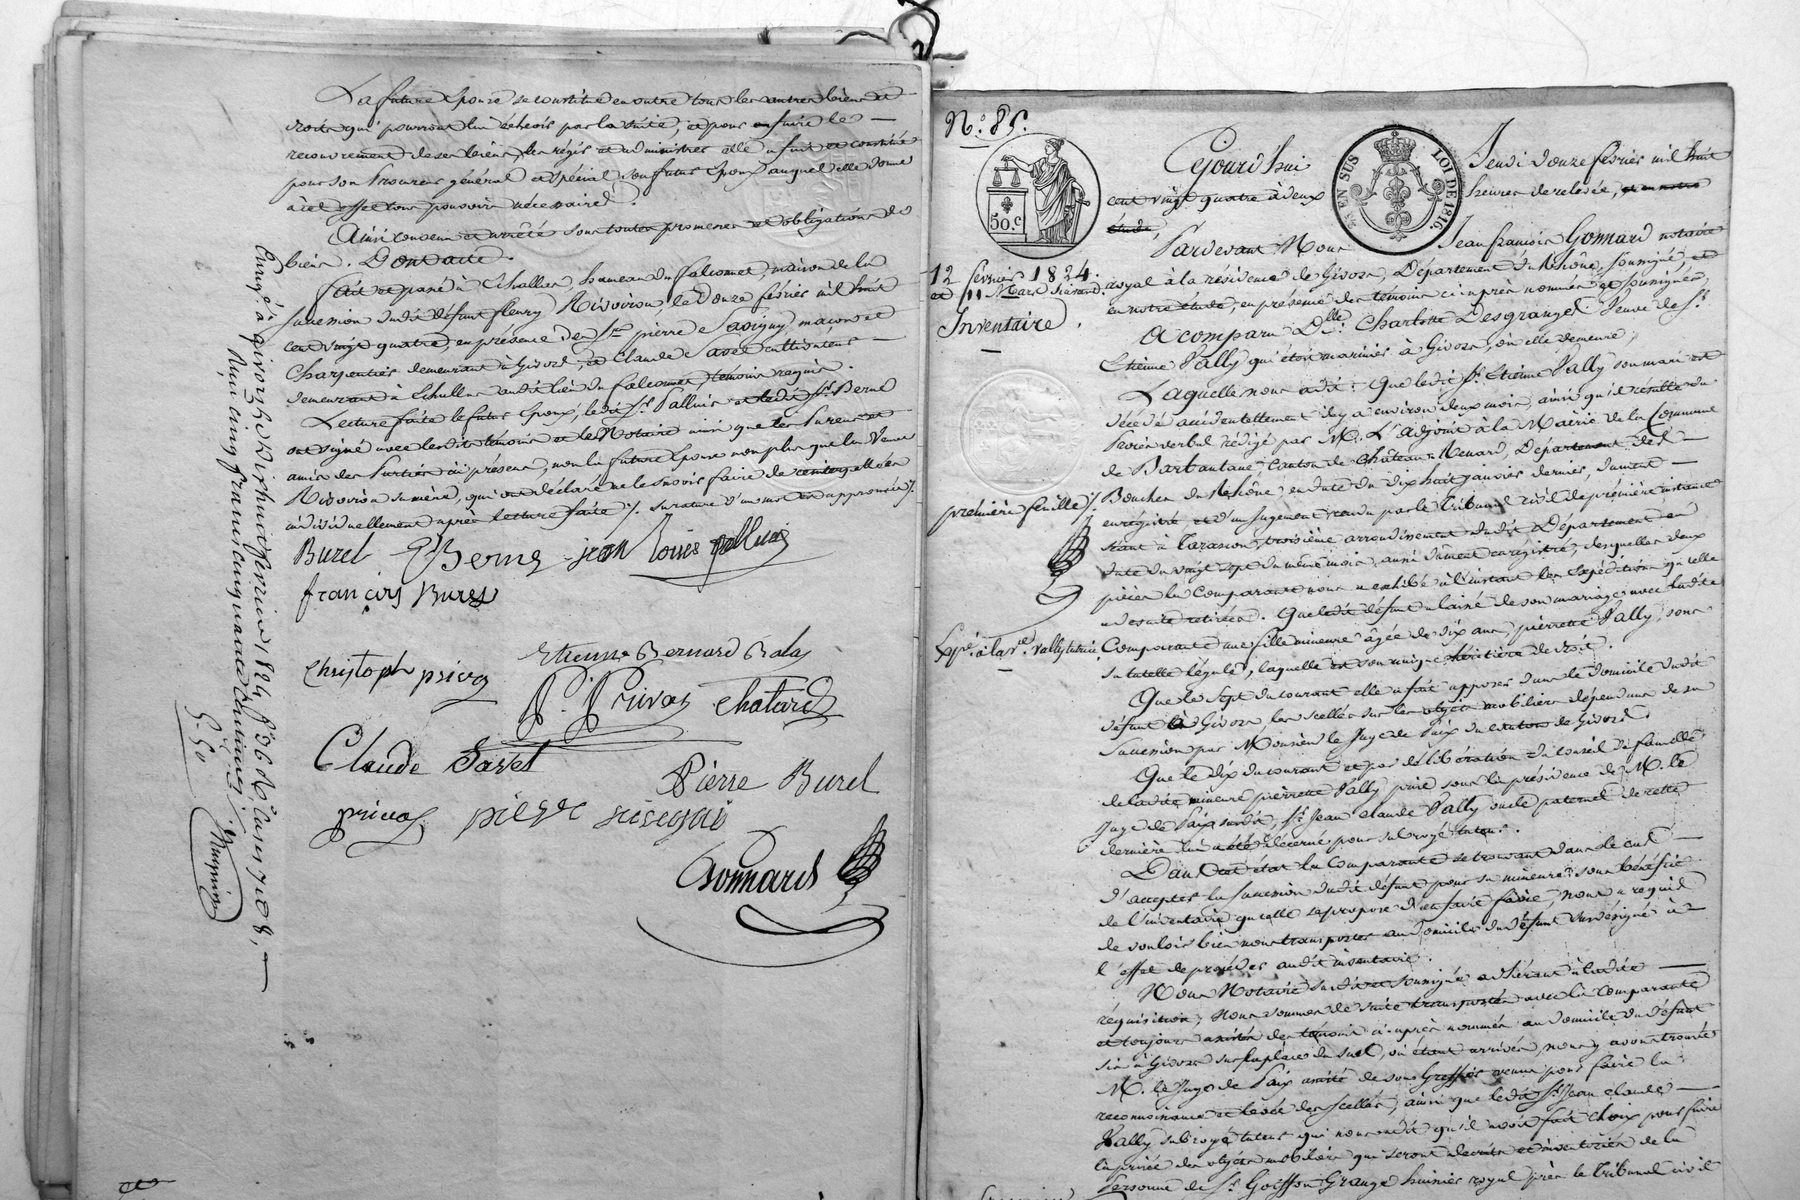 La future Epouse se constitue en outre tous les autres biens et
droits qui pourront lui échoir par la suite, et pour en faire le
recouvrement de ses biens, les régir et administrer elle a fait et constitué
pour son Procureur général et spécial son futur Epoux auquel elle donne
à cet effet tous pouvoirs nécessaires.
Ainsi convenu et arrêté sous toutes promesses et obligations de
biens. Dont acte.
Fait et passé à Echallas, hameau du falconnet, maison de la
succession dudit défunt fleury Rivoiron, le douze février mil huit
cent vingt quatre, en présence de Srs pierre Savigny, maçon et
Charpentier demeurant à Givors, et Claude cultivateur
demeurant à Echallas audit lieu du falconnet, témoins requis.
Lecture faite le futur Epoux, ledit Sr. Balluis et ledit Sr. Berne
ont signé avec lesdits témoins et le Notaire ainsi que les Parens et
amis des Parties ici présens, non la future Epouse non plus que la Veuve
Rivoiron sa mère, qui ont déclaré ne le savoir faire de ce interpellées
individuellement après lecture faite ./.
Burel Berne jean louis
françois Burel
Etienne Bernard
Christoph privas
P. Privas Chatard
Claude
Pierre Burel
privas pierre
Gonnard
Enreg.é à givors le dix huit février 1824, f.° 36 R.° Cases 7 et 8,
Reçu cinq francs cinquante centimes
5-50
N.° 85.
50.C
EN SUS
LOI DE 1816
Cejourd'hui Jeudi douze février mil huit
cent vingt quatre à deux heures de relevée, et en notre
étude,
Pardevant Nous Jean françois Gonnard notaire
12 février 1824.
et 11 Mars suivant.
royal à la résidence de Givors, Département du Rhône, soussigné et
en notre étude, en présence des témoins ci-après nommés et soussignés,
Inventaire.
A comparu D.lle Charlotte Desgranges Veuve de Sr.
Etienne Vally qui étoit marinier à Givors, où elle demeure,
Laquelle nous a dit : Que ledit Sr. Etienne Vally son mari est
décédé accidentellement il y a environ deux mois, ainsi qu'il résulte du
Procès verbal rédigé par M. L'adjoint à la Mairie de la Commune
de Barbantane, Canton de Château-Renard, Département des
Bouches du Rhône, en date du dix huit janvier dernier, dument
première feuille ./.
enregistré et d'un Jugement rendu par le Tribunal civil de première instance
séant à Tarascon, troisième arrondissement dudit Département en
date du vingt sept du même mois, aussi dûment enregistré, desquelles deux
pièces la Comparante nous a exhibé à l'instant les Expéditions qu'elle
a de suite retirées. Que ledit défunt a laissé de son mariage avec ladite
Exp.é à la v.e Vally tutrice.
Comparante une fille mineure âgée de dix ans, pierrette Vally, sous
sa tutelle légale, laquelle est son unique héritière de droit.
Que le Sept du courant elle a fait apposer dans le domicile dudit
défunt à Givors, les scellés sur les objets mobiliers dépendans de sa
Succession par Monsieur le Juge de Paix du canton de Givors.
Que le dix du courant et par délibération du conseil de famille
de ladite mineure pierrette Vally prise sous la présidence de M. le
Juge de Paix susdit, Sr. Jean claude Vally oncle paternel de cette
dernière lui a été décerné pour subrogé tuteur.
Dans cet état la Comparante se trouvant dans le cas
d'accepter la succession dudit défunt pour sa mineure sous bénéfice
de l'inventaire qu'elle se propose d'en faire faire, nous a requis
de vouloir bien nous transporter au domicile du défunt susdésigné à
l'effet de procéder audit inventaire.
Nous Notaire susdit et soussigné adhérant à ladite
réquisition, nous sommes de suite transportés avec la comparante
et toujours assistés des témoins ci-après nommés au domicile du défunt
sis à Givors sur la place du sud, où étant arrivés, nous y avons trouvé
M. le Juge de Paix assisté de son Greffier venu pour faire la
reconnoissance et levée des scellés, ainsi que ledit Sr. Jean claude
Vally subrogé tuteur qui nous a dit qu'il avoit fait choix pour faire
la prisée des objets mobiliers qui seront décrits et inventoriés de la
Personne de Sr. Goiffon Grange huissier royal près le Tribunal civil